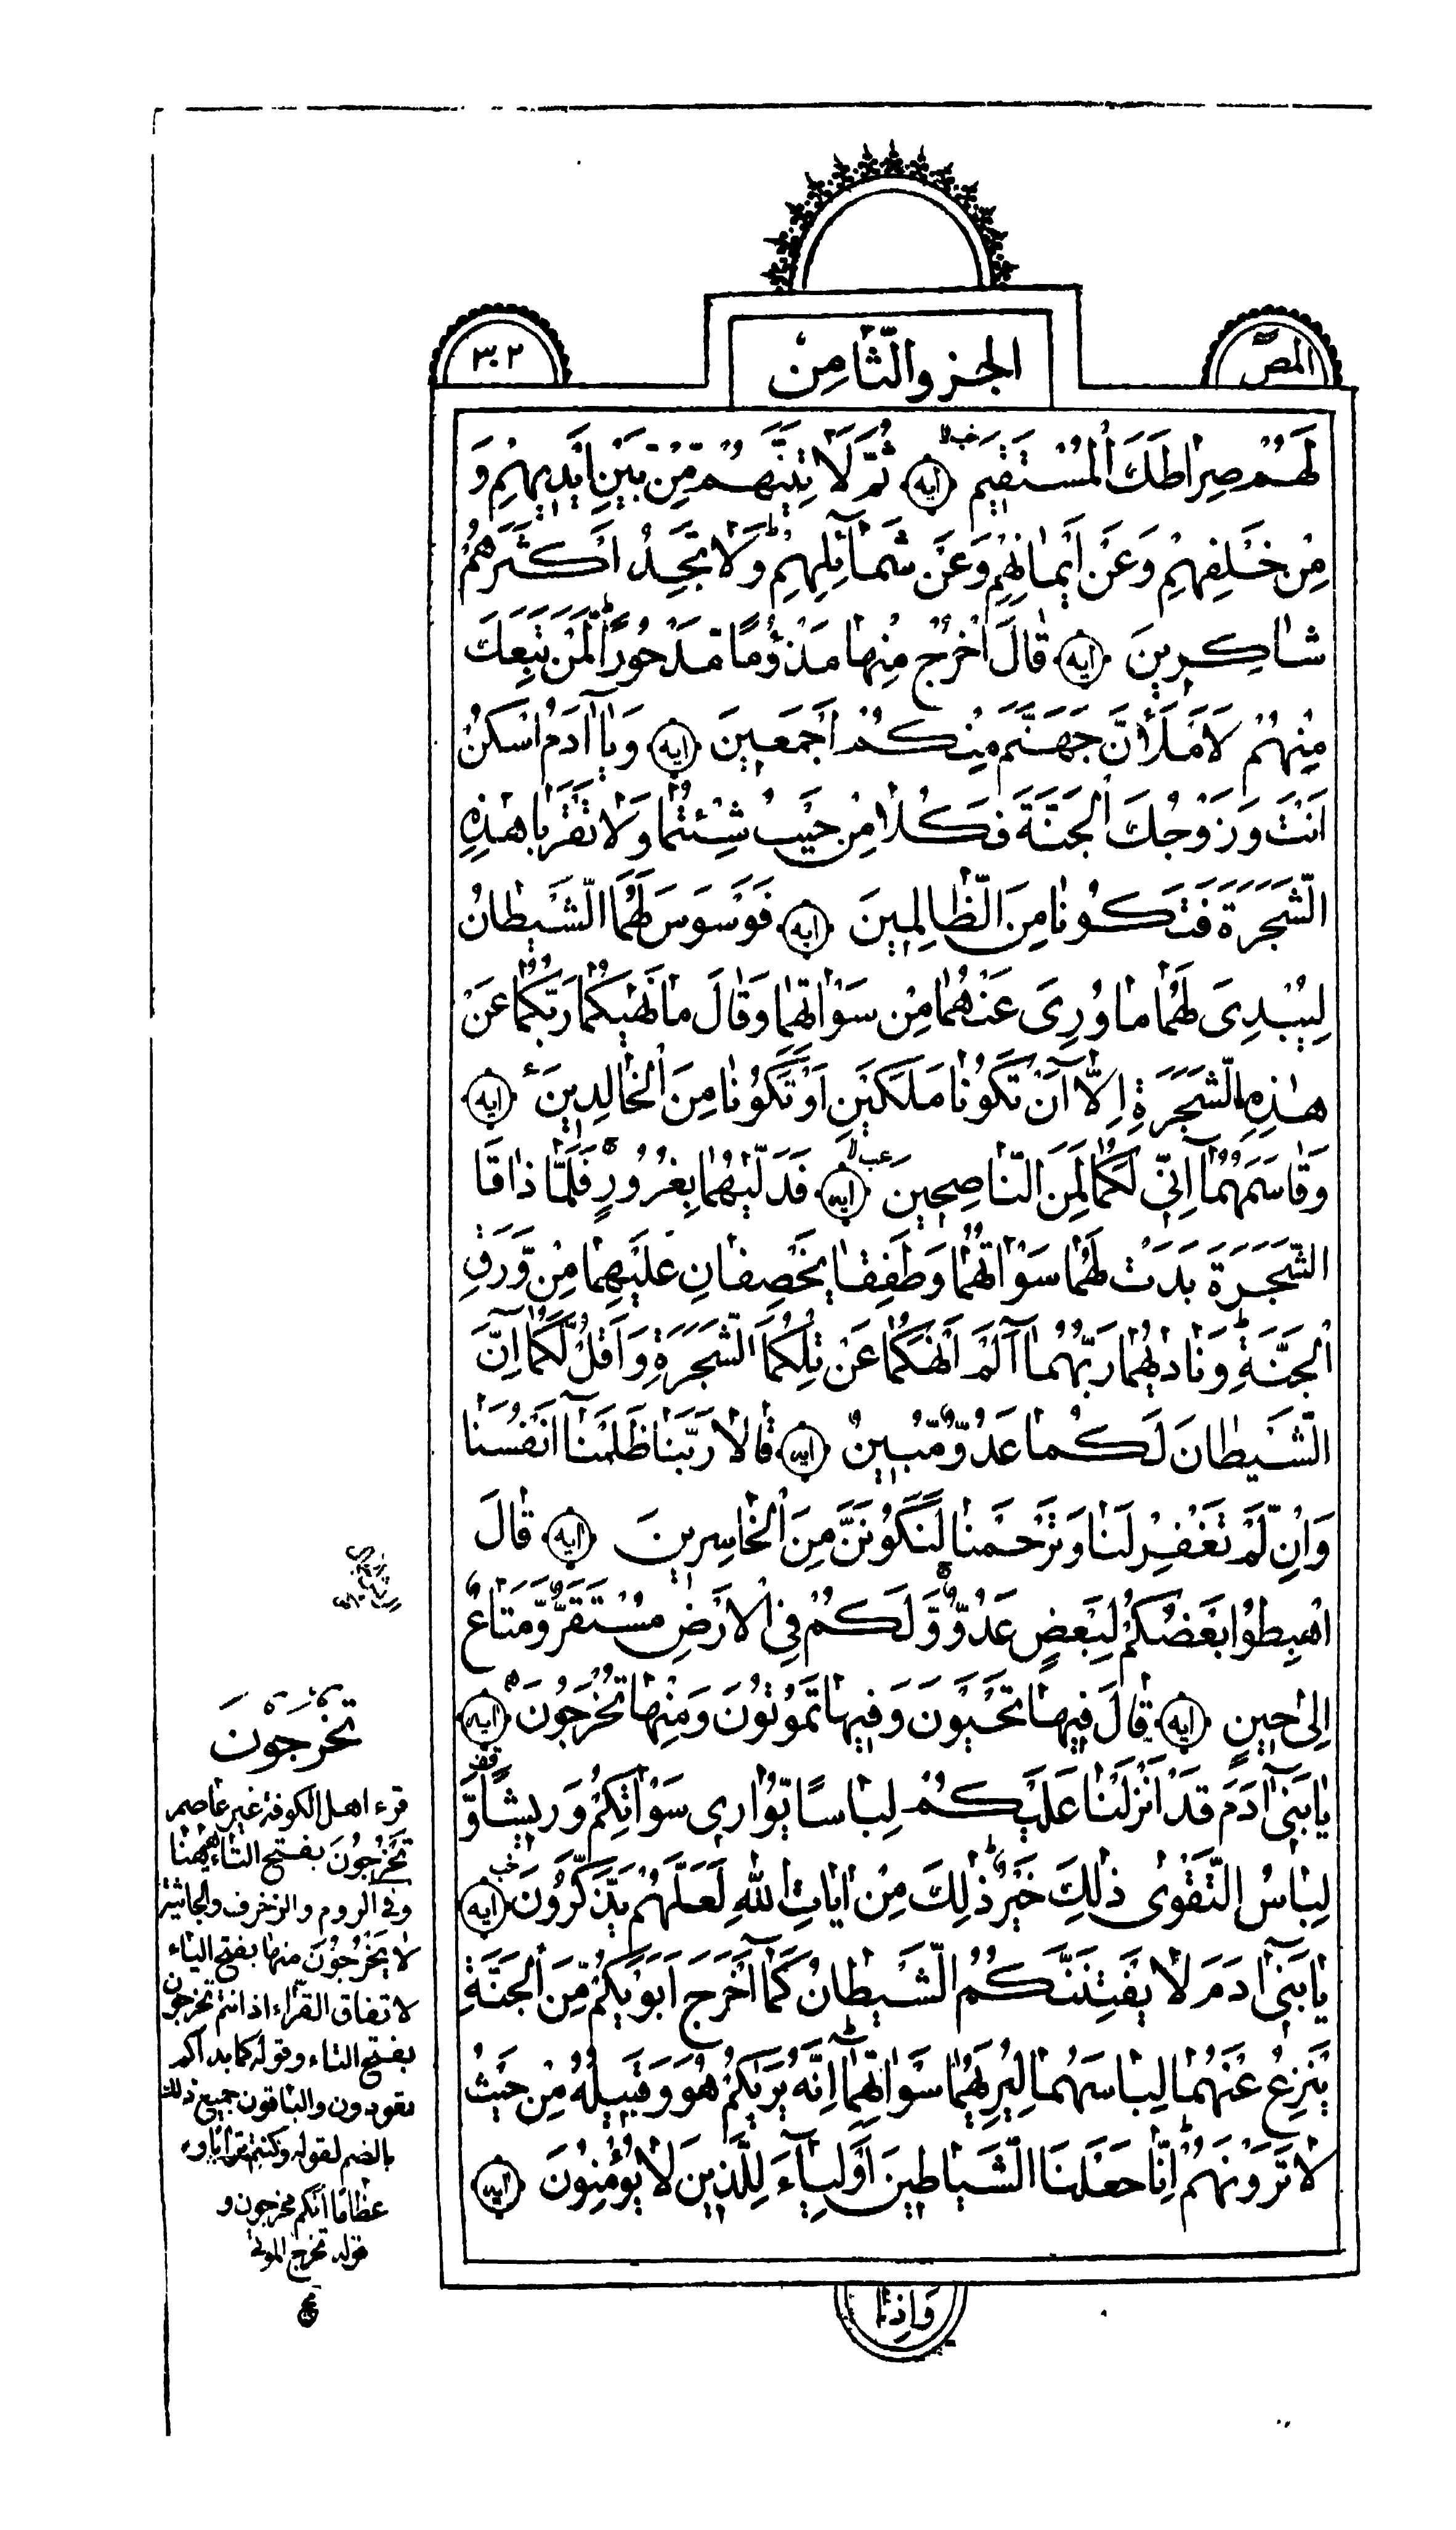 المص
الجزو الثامن
٣٠٢
لَهُمْ صِرَاطَكَ الْمُسْتَقِيمَ ايه ثُمَّ لَاٰتِيَنَّهُمْ مِّنْ بَيْنِ اَيْدِيهِمْ وَ
مِنْ خَلْفِهِمْ وَعَنْ اَيْمَانِهِمْ وَعَنْ شَمَآئِلِهِمْ ط وَلَا تَجِدُ اَكْثَرَهُمْ
شَاكِرِينَ ايه قَالَ اخْرُجْ مِنْهَا مَذْؤُمًا مَّدْحُورًا ط لَمَنْ تَبِعَكَ
مِنْهُمْ لَاَمْلَأَنَّ جَهَنَّمَ مِنْكُمْ اَجْمَعِينَ ايه وَيَآ اٰدَمُ اسْكُنْ
اَنْتَ وَزَوْجُكَ الْجَنَّةَ فَكُلَا مِنْ حَيْثُ شِئْتُمَا وَلَا تَقْرَبَا هٰذِهِ
الشَّجَرَةَ فَتَكُونَا مِنَ الظَّالِمِينَ ايه فَوَسْوَسَ لَهُمَا الشَّيْطَانُ
لِيُبْدِىَ لَهُمَا مَا وُرِىَ عَنْهُمَا مِنْ سَوْاٰتِهِمَا وَقَالَ مَا نَهٰيكُمَا رَبُّكُمَا عَنْ
هٰذِهِ الشَّجَرَةِ اِلَّآ اَنْ تَكُونَا مَلَكَيْنِ اَوْ تَكُونَا مِنَ الْخَالِدِينَ ايه
وَقَاسَمَهُمَآ اِنِّى لَكُمَا لَمِنَ النَّاصِحِينَ ايه فَدَلّٰيهُمَا بِغُرُورٍ فَلَمَّا ذَاقَا
الشَّجَرَةَ بَدَتْ لَهُمَا سَوْاٰتُهُمَا وَطَفِقَا يَخْصِفَانِ عَلَيْهِمَا مِنْ وَّرَقِ
الْجَنَّةِ ط وَنَادٰيهُمَا رَبُّهُمَآ اَلَمْ اَنْهَكُمَا عَنْ تِلْكُمَا الشَّجَرَةِ وَاَقُلْ لَّكُمَآ اِنَّ
الشَّيْطَانَ لَكُمَا عَدُوٌّ مُّبِينٌ ايه قَالَا رَبَّنَا ظَلَمْنَآ اَنْفُسَنَا
وَاِنْ لَّمْ تَغْفِرْ لَنَا وَتَرْحَمْنَا لَنَكُونَنَّ مِنَ الْخَاسِرِينَ ايه قَالَ
اهْبِطُوا بَعْضُكُمْ لِبَعْضٍ عَدُوٌّ وَّلَكُمْ فِى الْاَرْضِ مُسْتَقَرٌّ وَّمَتَاعٌ
اِلٰى حِينٍ ايه قَالَ فِيهَا تَحْيَوْنَ وَفِيهَا تَمُوتُونَ وَمِنْهَا تُخْرَجُونَ ايه
يَا بَنِىٓ اٰدَمَ قَدْ اَنْزَلْنَا عَلَيْكُمْ لِبَاسًا يُّوَارِى سَوْاٰتِكُمْ وَرِيشًا وَّ
لِبَاسُ التَّقْوٰى ذٰلِكَ خَيْرٌ ط ذٰلِكَ مِنْ اٰيَاتِ اللّٰهِ لَعَلَّهُمْ يَذَّكَّرُونَ ايه
يَا بَنِىٓ اٰدَمَ لَا يَفْتِنَنَّكُمُ الشَّيْطَانُ كَمَآ اَخْرَجَ اَبَوَيْكُمْ مِّنَ الْجَنَّةِ
يَنْزِعُ عَنْهُمَا لِبَاسَهُمَا لِيُرِيَهُمَا سَوْاٰتِهِمَا ط اِنَّهُ يَرٰيكُمْ هُوَ وَقَبِيلُهُ مِنْ حَيْثُ
لَا تَرَوْنَهُمْ ط اِنَّا جَعَلْنَا الشَّيَاطِينَ اَوْلِيَآءَ لِلَّذِينَ لَا يُؤْمِنُونَ ايه
وَاِذَا
تُخْرَجُونَ
قرء اهل الكوفة غير عاصم
تَخْرُجُونَ بفتح التاء ههنا
وفى الروم والزخرف والجاثية
لا يَخْرُجُونَ منها بفتح الياء
لاتفاق القراء اذا انتم تخرجون
بفتح التاء وقوله كما بداكم
تعودون والباقون جميع ذلك
بالضم لقوله وكنتم ترابا و
عظاما انكم مخرجون و
قوله نخرج الموتى